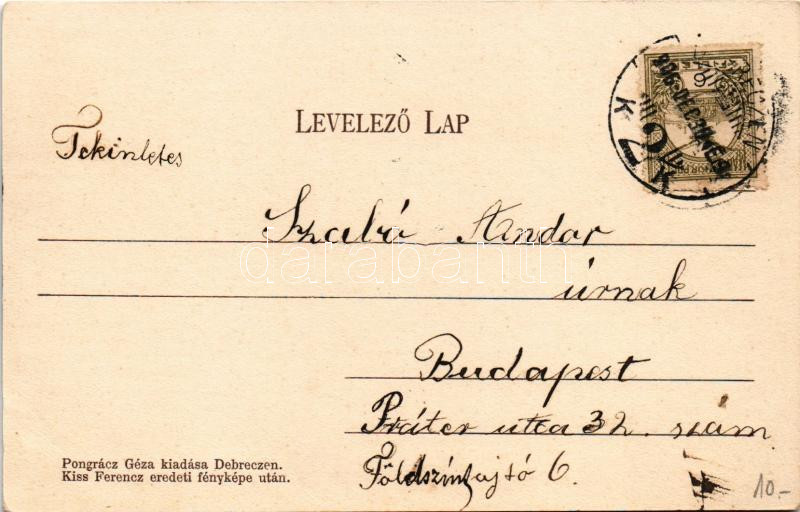 LEVELEZŐ LAP
Tekintetes
Szabó Andor
úrnak
Budapest
Práter utca 32. szám
Földszint ajtó 6.
Pongrácz Géza kiadása Debreczen.
Kiss Ferencz eredeti fényképe után.
10.-
darabanth